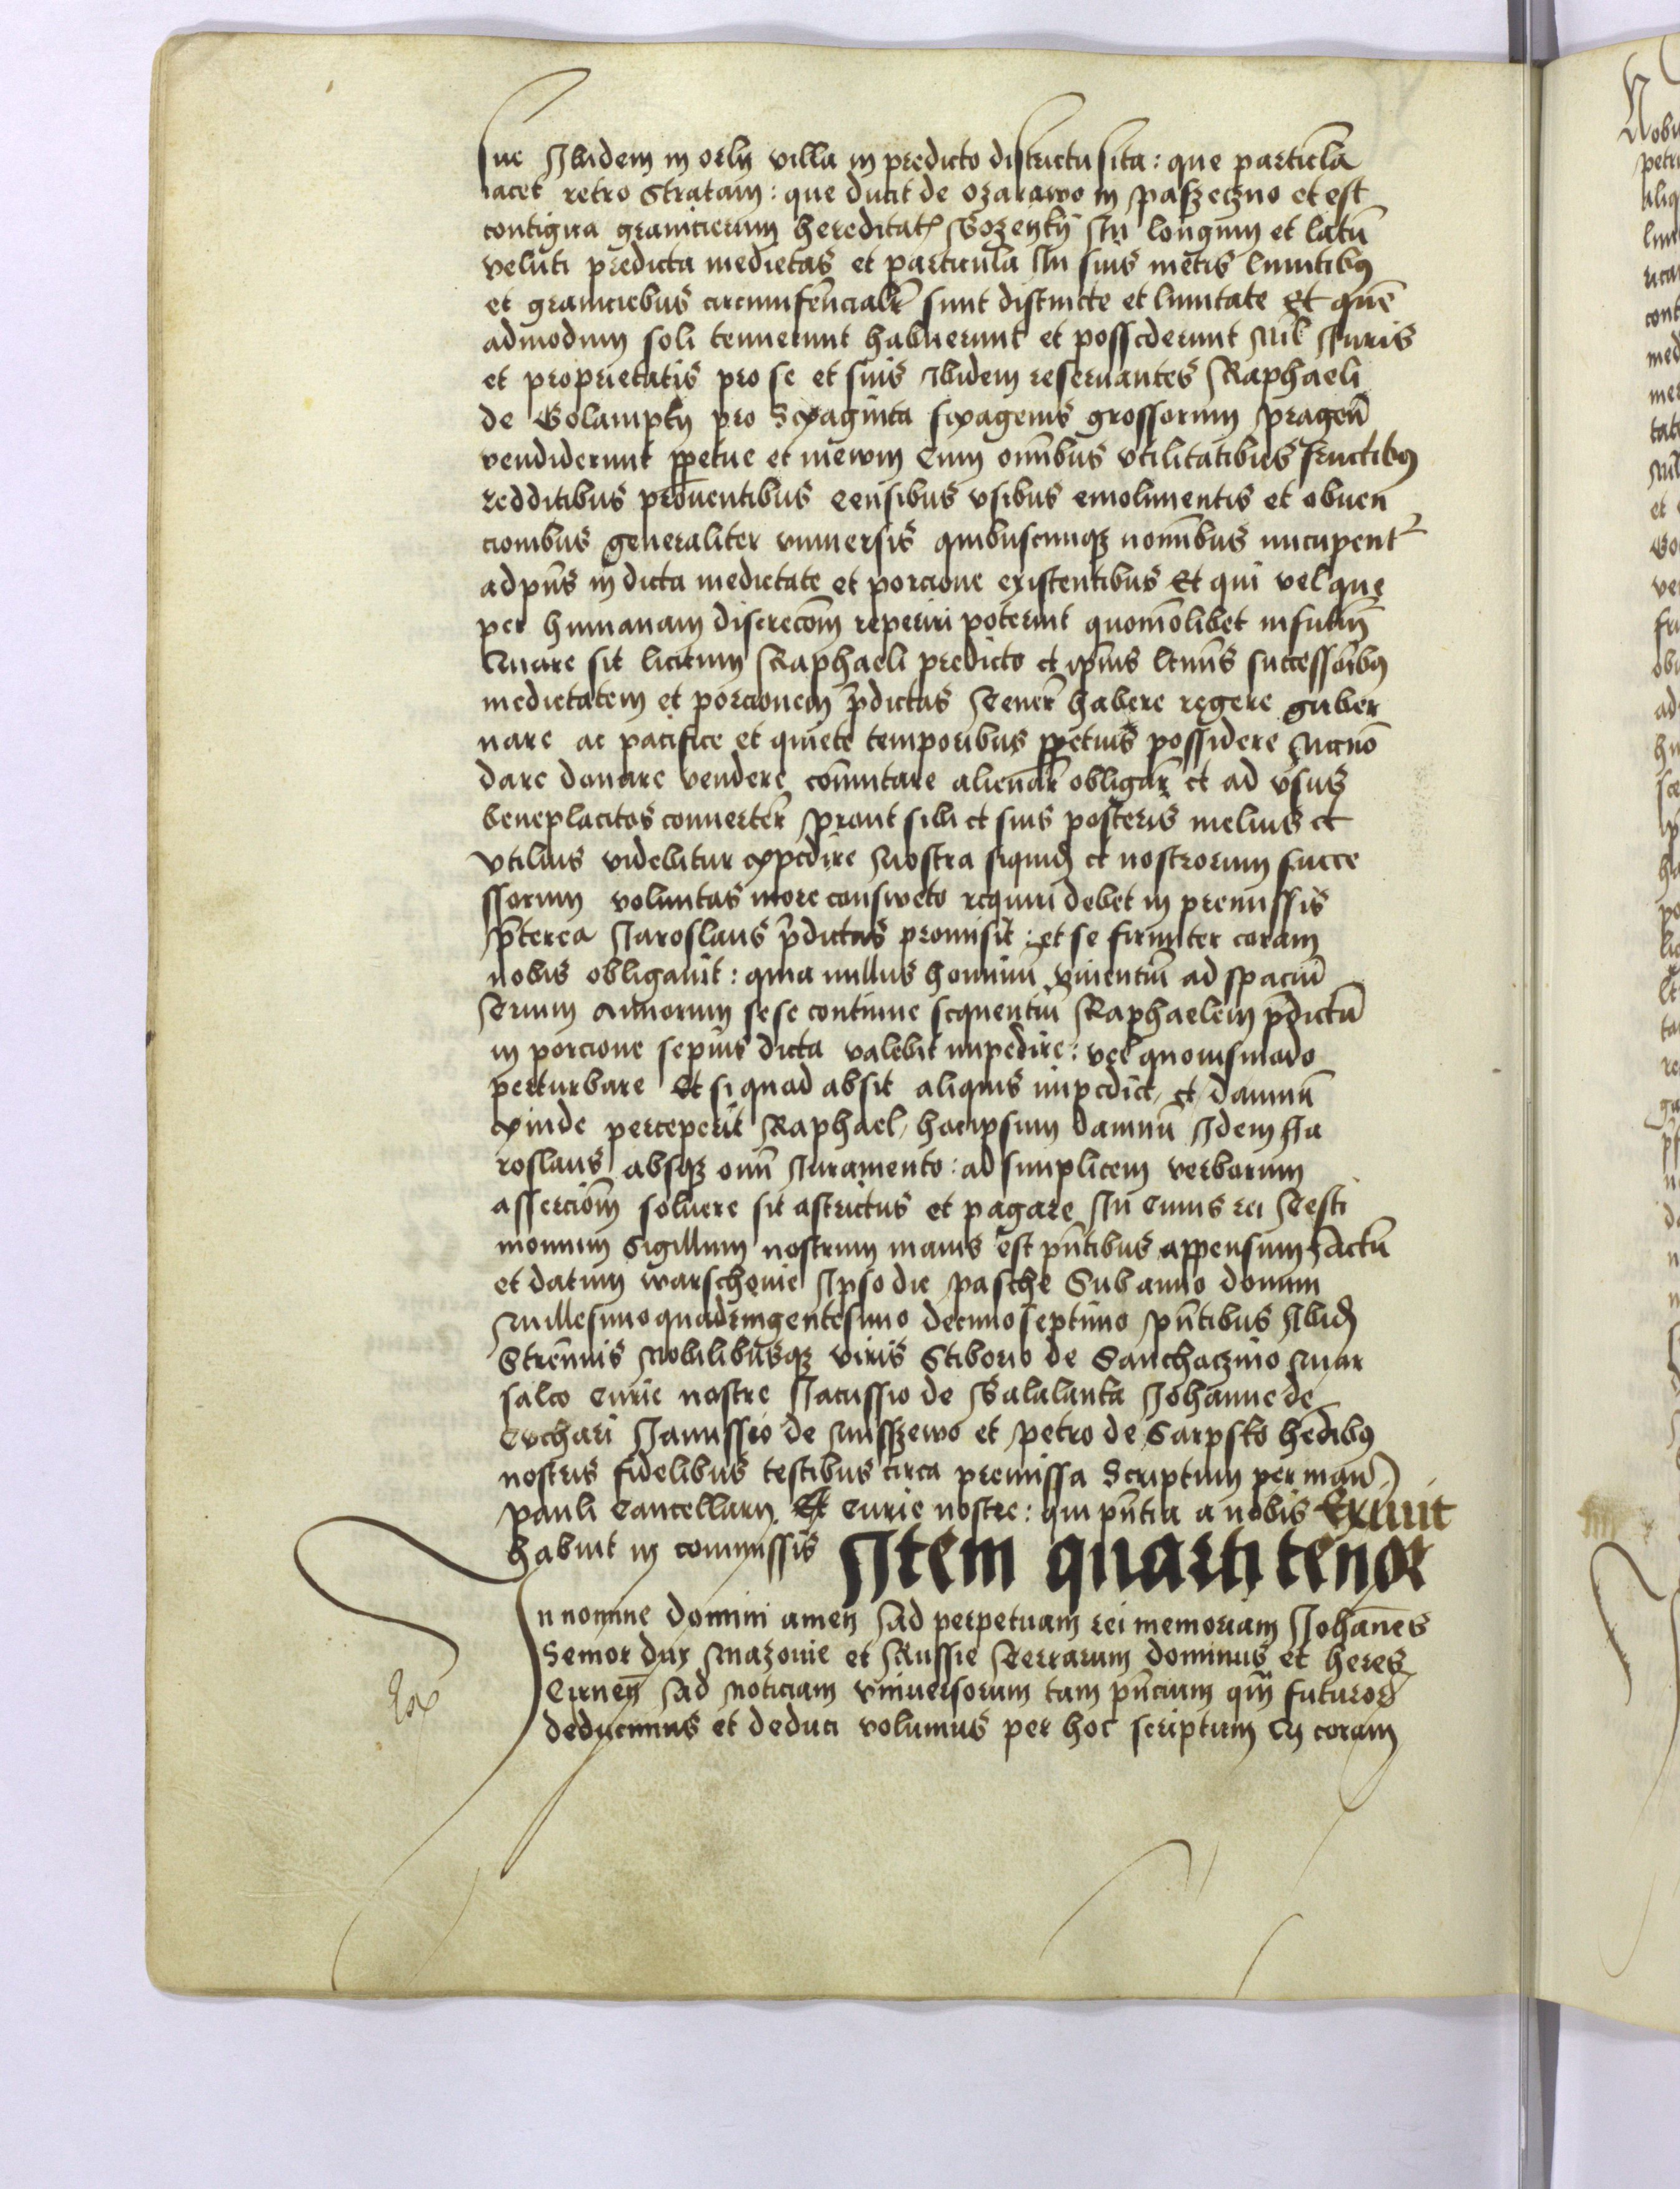 sue Ibidem in orly villa in predicto districtu sita : que particula
iacet retro Stratam : que ducit de Ozarawo in paszeczno et est
contigua granicierum hereditat(is) Gozenky In longum et latū
veluti predicta medietas et particula In suis metis limitibꝰ
et graniciebus circumferēncialr̄ sunt distincte et limitate Et quē
admodum soli tenuerunt habuerunt et possederunt Nil Iuris
et proprietatis pro se et suis Ibidem reseruantes Raphaeli
de Golampky pro Sexaginta sexagenis grossorum pragen̄
vendiderunt ꝑpetue et in ewm Cum omībus vtilitatibus fructibꝰ
redditibus prouentibus Censibus vsibus emolimentis et obuen
cionibus generaliter vniuersis quibuscumqꝫ nomībus nucupent᷑
ad pn̄s in dicta medietate et porcione existentibus Et qui vel que
per humanam discrecōm reperiri poterint quomōlibet in futur̄
Quare sit licitum Raphaeli predicto et ip̄ius lttmīs successōibꝰ
medietatem et porcionem p̄dictas Tener̄ habere regere guber
nare ac pacifice et quiete temporibus ꝑpetuis possidere Necnō
dare donare vendere cōmutare alienar̄ obligar̄ et ad vsus
beneplacitos conuerter̄ prout sibi et suis posteris melius et
vtilius videbitur expedire Nostra siquid(em) et nostrorum succe
ssorum voluntas more consweto requiri debet in premissis
p̄terea Jaroslaus p̄dictus promisit : et se firmiter coram
nobis obligauit : quia nullus hominū viuentiū ad spaciū
Trium Annorum sese continue sequentiū Raphaelem p̄dictū
in porcione sepius dicta valebit impedire : vel quouismodo
perturbare Et si quod absit aliquis impedict et damnū
exinde perceperit Raphael hoc ipsum damnū Idem Ja
roslaus absqꝫ omī Iuramento : ad simplicem verborum
assercōm soluere sit astrictus et pagare In Cuius rei Testi
monium Sigillum nostrum maius est pn̄tibus appensum Actū
et datum warschouie Ipso die pasche Sub anno domini
Millesimo quadringentesimo decimoseptimo pn̄tibus Ibid(em)
Strēnuis Nobilibusqꝫ viris Stiborio de Sanchaczino Mar
salco Curie nostre Jacussio de Balalanka Johanne de
Cuchari Janussio de Misszewo et petro de Sarpsko hēdibꝰ
nostris fidelibus testibus circa premissa Scriptum per man(us)
pauli Cancellarii Et Curie nostre : qui pn̄tia a nobis
habuit in commissis Item quarti tenor
In nomine domini amen Ad perpetuam rei memoriam Johannēs
Senior dux Mazouie et Russie Terrarum dominus et heres
Cirnen̄ Ad Noticiam vniuersorum tam pn̄cium qm̄ futuroꝝ
deducimus et deduci volumus per hoc scriptum coram